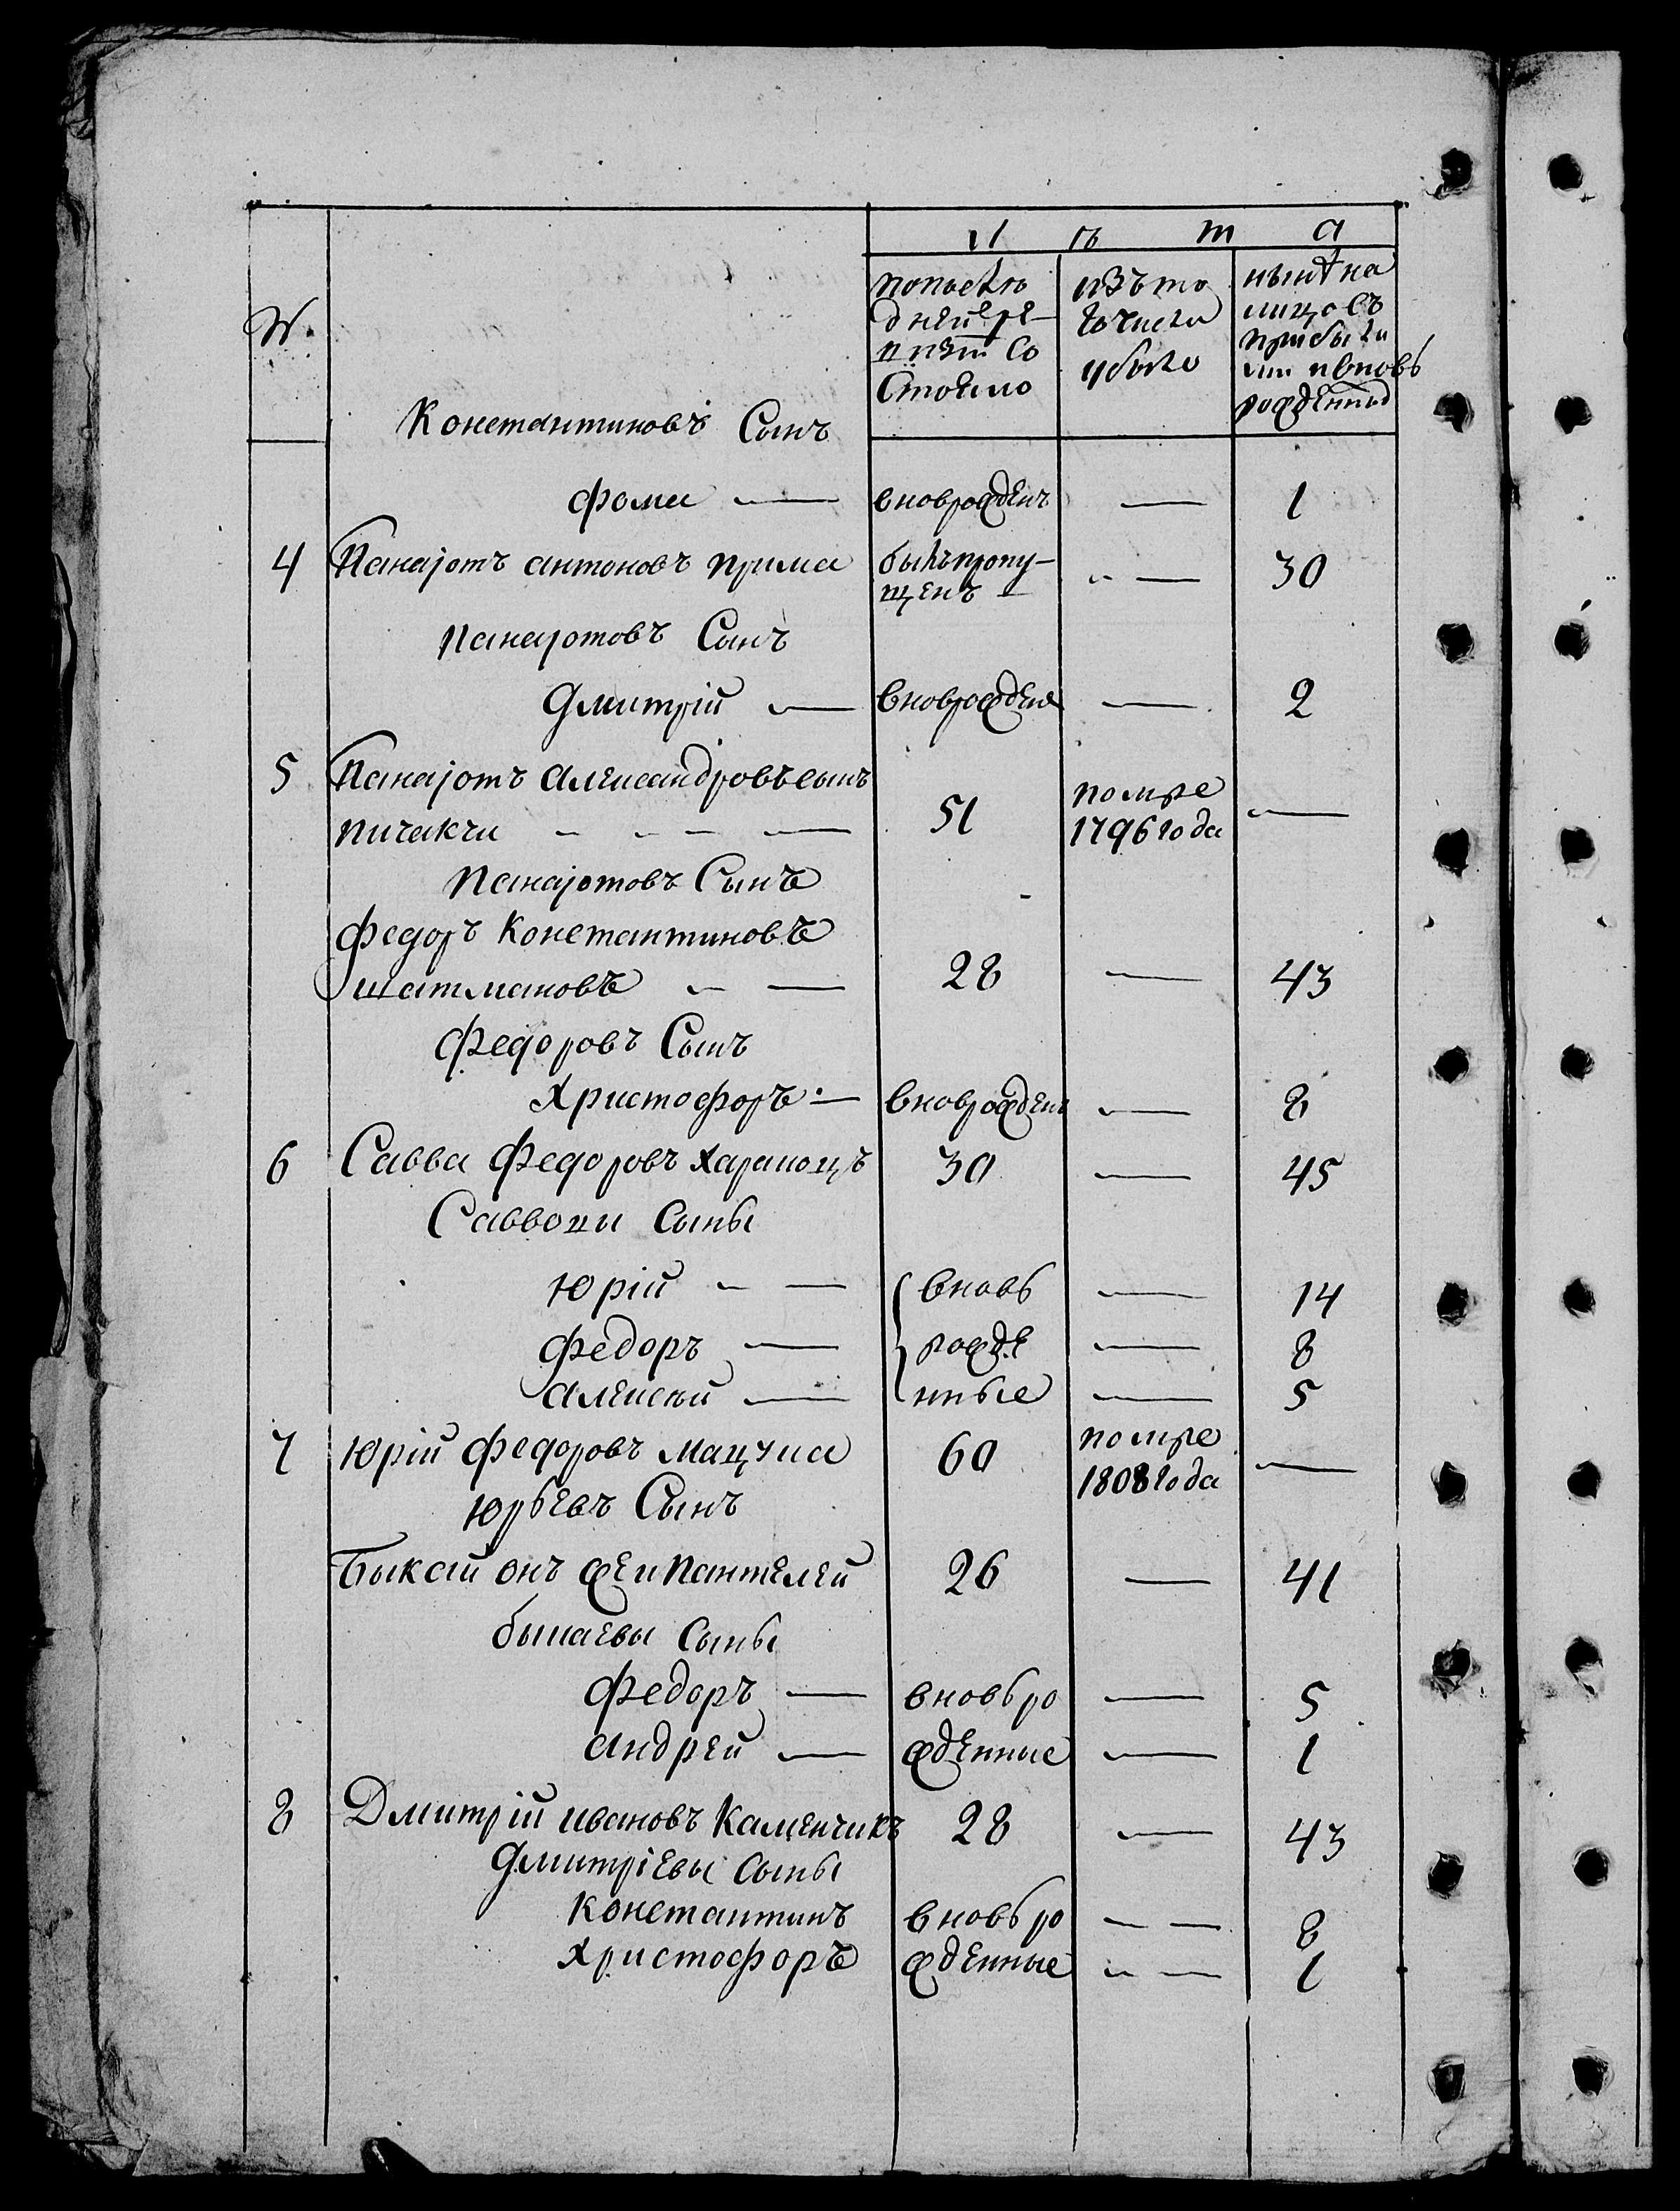 Л ѣ т а
№.
попослѣ
дней ре-
визіи со
стояло
изъ то
го числа
убыло
нынѣ на
лицо съ
прибыли
ми и вновь
рожденны
Константиновъ Сынъ
Фома — вновьрожденъ — 1
4 Панаjотъ Антоновъ Прима былъ пропу-
щенъ — — 30
Панаjотовъ Сынъ
Дмитрій — вновьрожденъ — 2
5 Панаjотъ Александровъ сынъ
Пичакчи — — — 51 помре
1796 года —
Панаjотовъ Сынъ
Федоръ Константиновъ
Шатмановъ — 28 — 43
Федоровъ Сынъ
Христофоръ — вновьрожденъ — 8
6 Савва Федоровъ Харапоцъ 30 — 45
Саввони Сыны
Юрій — вновь — 14
Федоръ — рожде — 8
Алексѣй — нные — 5
7 Юрій Федоровъ Мацука 60 помре
1808 года —
Юрьевъ Сынъ
Быкай онъ же и Пантелей 26 — 41
быкаевы Сыны
Федоръ — вновь ро — 5
Андрей — жденные — 1
8 Дмитрій Ивановъ Каменчикъ 28 — 43
Дмитріевы Сыны
Константинъ вновь ро — 8
Христофоръ жденные — 1